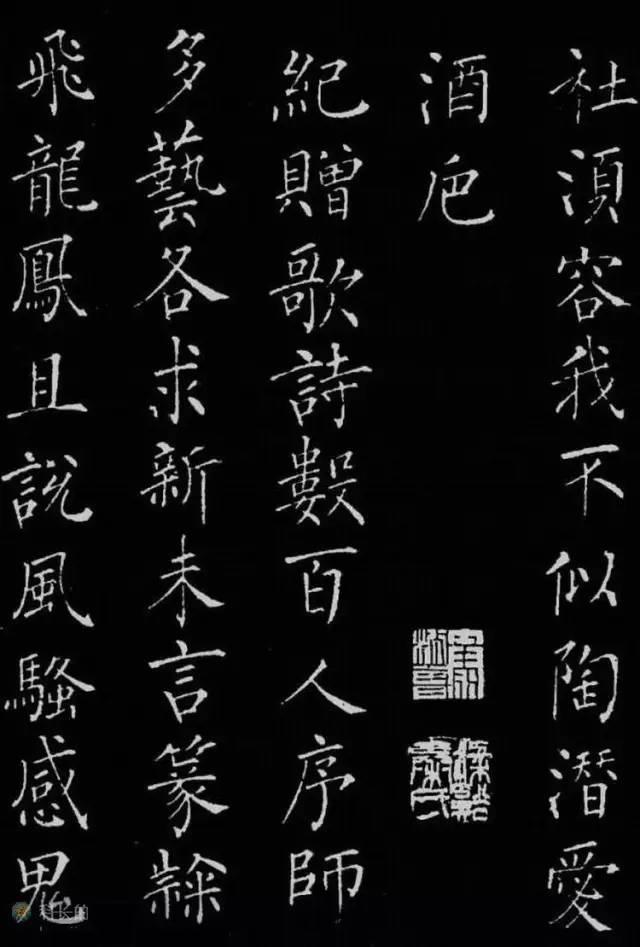 社須容我不似陶潛愛
酒巵
紀贈歌詩數百人序師
多藝各求新未言篆隸
飛龍鳳且說風騷感鬼